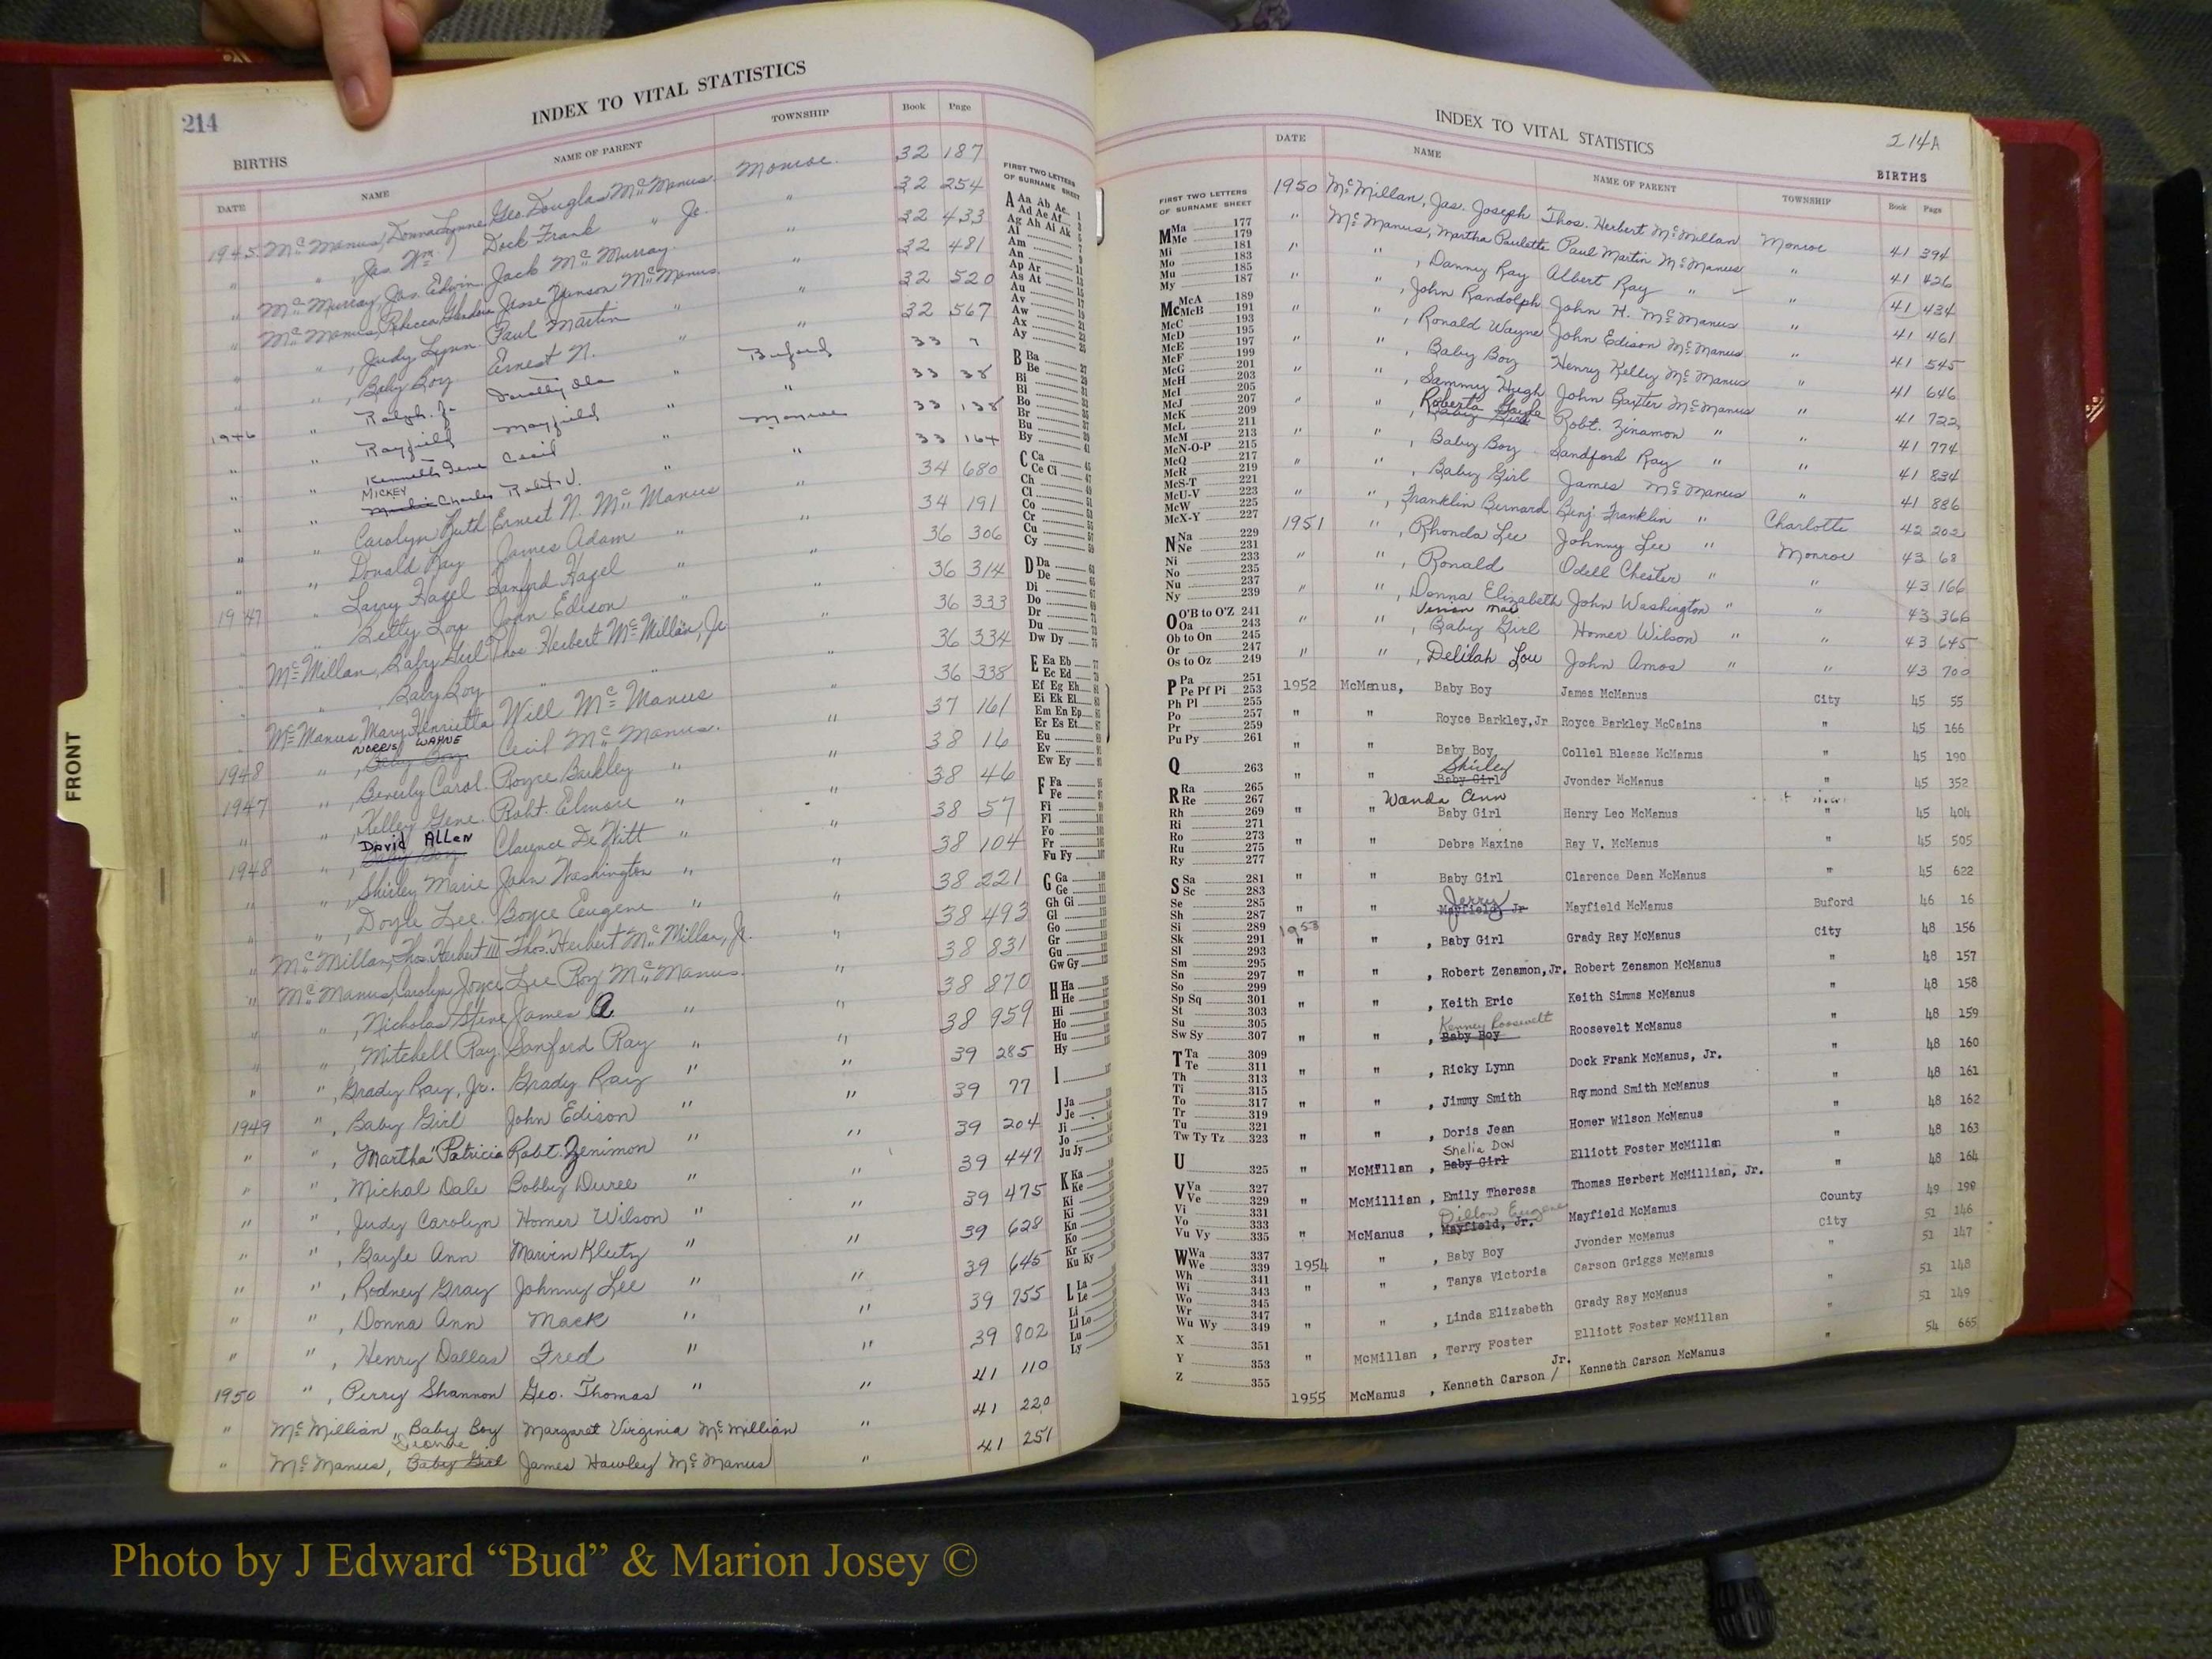 214
INDEX TO VITAL STATISTICS
BIRTHS
DATE NAME NAME OF PARENT TOWNSHIP Book Page
1945 McManus, Donna Lynne Geo. Douglas McManus Monroe 32 187
" " , Jas. Wm. Dock Frank " Jr. " 32 254
" McMurray, Jas. Edwin Jack McMurray " 32 433
" McManus, Rebecca Jesse McManus " 32 481
" " , Judy Lynn Paul Martin " " 32 520
" " , Baby Boy Ernest N. " 32 567
1946 " Ralph Jr. " Buford 33 7
" " Rayfield Mayfield " " 33 38
" " Kenneth Gene Cecil " Monroe 33 138
MICKEY
" " Charles " 33 164
" " Carolyn Ruth Ernest N. McManus 34 680
" " Donald Ray James Adam " " 34 191
1947 " Larry Hazel Sanford Hazel " " 36 306
" " Betty Lou John Edison " " 36 314
" McMillan, Baby Girl Thos. Herbert McMillan, Jr. " 36 333
" " , Baby Boy " " " 36 334
" McManus, Mary Henrietta Will McManus " 36 338
NORRIS WAYNE
1948 " , Baby Boy Cecil McManus " 37 161
1947 " , Beverly Carol Royce Barkley " " 38 16
" " , Kelley Gene Robt. Elmore " " 38 46
David Allen
1948 " , Baby Boy Clarence DeWitt " " 38 57
" " , Shirley Marie John Washington " " 38 104
" " , Doyle Lee Boyce Eugene " " 38 221
" McMillan, Thos. Herbert III Thos. Herbert McMillan, Jr. " 38 493
" McManus, Carolyn Joyce Lee Roy McManus " 38 831
" " , Nicholas Steve James A. " " 38 870
" " , Mitchell Ray Sanford Ray " " 38 959
" " , Grady Ray, Jr. Grady Ray " " 39 285
1949 " , Baby Girl John Edison " " 39 77
" " , Martha Patricia Robt. Zenimon " " 39 204
" " , Michal Dale Bobby Duree " " 39 447
" " , Judy Carolyn Homer Wilson " " 39 475
" " , Gayle Ann Marvin Klutz " " 39 628
" " , Rodney Gray Johnny Lee " " 39 645
" " , Donna Ann Mack " " 39 755
" " , Henry Dallas Fred " " 39 802
1950 " , Perry Shannon Geo. Thomas " " 41 110
" McMillian, Baby Boy Margaret Virginia McMillian " 41 220
" McManus, Baby Girl James Hawley McManus " 41 251
FIRST TWO LETTERS
OF SURNAME SHEET
A Aa Ab Ac 1
Ad Ae Af
Ag Ah Ai Ak
Al
Am
An
Ap Ar
As At
Au
Av
Aw
Ax
Ay
B Ba
Be
Bi
Bl
Bo
Br
Bu
By
C Ca
Ce Ci
Ch
Cl
Co
Cr
Cu
Cy
D Da
De
Di
Do
Dr
Du
Dw Dy
E Ea Eb
Ec Ed
Ef Eg Eh
Ei Ek El
Em En Ep
Er Es Et
Eu
Ev
Ew Ey
F Fa
Fe
Fi
Fl
Fo
Fr
Fu Fy
G Ga
Ge
Gh Gi
Gl
Go
Gr
Gu
Gw Gy
H Ha
He
Hi
Ho
Hu
Hy
I
J Ja
Je
Ji
Jo
Ju Jy
K Ka
Ke
Ki
Kl
Kn
Ko
Kr
Ku Ky
L La
Le
Li
Ll Lo
Lu
Ly
INDEX TO VITAL STATISTICS
214A
BIRTHS
DATE NAME NAME OF PARENT TOWNSHIP Book Page
FIRST TWO LETTERS
OF SURNAME SHEET
M Ma 177
Me 179
Mi 181
Mo 183
Mu 185
My 187
Mc McA 189
McB 191
McC 193
McD 195
McE 197
McF 199
McG 201
McH 203
McI 205
McJ 207
McK 209
McL 211
McM 213
McN-O-P 215
McQ 217
McR 219
McS-T 221
McU-V 223
McW 225
McX-Y 227
N Na 229
Ne 231
Ni 233
No 235
Nu 237
Ny 239
O O'B to O'Z 241
Oa 243
Ob to On 245
Or 247
Os to Oz 249
P Pa 251
Pe Pf Pi 253
Ph Pl 255
Po 257
Pr 259
Pu Py 261
Q 263
R Ra 265
Re 267
Rh 269
Ri 271
Ro 273
Ru 275
Ry 277
S Sa 281
Sc 283
Se 285
Sh 287
Si 289
Sk 291
Sl 293
Sm 295
Sn 297
So 299
Sp Sq 301
St 303
Su 305
Sw Sy 307
T Ta 309
Te 311
Th 313
Ti 315
To 317
Tr 319
Tu 321
Tw Ty Tz 323
U 325
V Va 327
Ve 329
Vi 331
Vo 333
Vu Vy 335
W Wa 337
We 339
Wh 341
Wi 343
Wo 345
Wr 347
Wu Wy 349
X 351
Y 353
Z 355
1950 McMillan, Jas. Joseph Thos. Herbert McMillan Monroe 41 394
" McManus, Martha Paulette Paul Martin McManus " 41 426
" " , Danny Ray Albert Ray " " 41 434
" " , John Randolph John H. McManus " 41 461
" " , Ronald Wayne John Edison McManus " 41 545
" " , Baby Boy Henry Kelly McManus " 41 646
" " , Sammy Hugh John Baxter McManus " 41 722
Roberta Gayle
" " , Baby Girl Robt. Zenamon " " 41 774
" " , Baby Boy Sandford Ray " " 41 834
" " , Baby Girl James McManus " 41 886
" " , Franklin Bernard Benj. Franklin " Charlotte 42 202
1951 " , Rhonda Lee Johnny Lee " Monroe 43 68
" " , Ronald Odell Chester " " 43 166
" " , Donna Elizabeth John Washington " " 43 366
Vivian Mae
" " , Baby Girl Homer Wilson " " 43 645
" " , Delilah Lou John Amos " " 43 700
1952 McManus, Baby Boy James McManus City 45 55
" " Royce Barkley, Jr Royce Barkley McCains " 45 166
" " Baby Boy Collel Blease McManus " 45 190
Shirley
" " Baby Girl Jvonder McManus " 45 352
Wanda Ann
" " Baby Girl Henry Leo McManus " 45 404
" " Debra Maxine Ray V. McManus 45 505
" " Baby Girl Clarence Dean McManus " 45 622
Jerry
" " Mayfield, Jr Mayfield McManus Buford 46 16
1953 " , Baby Girl Grady Ray McManus City 48 156
" " , Robert Zenamon, Jr. Robert Zenamon McManus " 48 157
" " , Keith Eric Keith Simms McManus " 48 158
Kenney Roosevelt
" " , Baby Boy Roosevelt McManus " 48 159
" " , Ricky Lynn Dock Frank McManus, Jr. " 48 160
" " , Jimmy Smith Raymond Smith McManus " 48 161
" " , Doris Jean Homer Wilson McManus " 48 162
Shelia Dow
" McMillan , Baby Girl Elliott Foster McMillan " 48 163
" McMillian , Emily Theresa Thomas Herbert McMillian, Jr. " 48 164
Dillon Eugene
" McManus , Mayfield, Jr. Mayfield McManus County 49 198
1954 " , Baby Boy Jvonder McManus City 51 146
" " , Tanya Victoria Carson Griggs McManus " 51 147
" " , Linda Elizabeth Grady Ray McManus 51 148
" McMillan , Terry Foster Elliott Foster McMillan " 51 149
1955 McManus , Kenneth Carson / Jr. Kenneth Carson McManus " 54 665
FRONT
Photo by J Edward “Bud” & Marion Josey ©